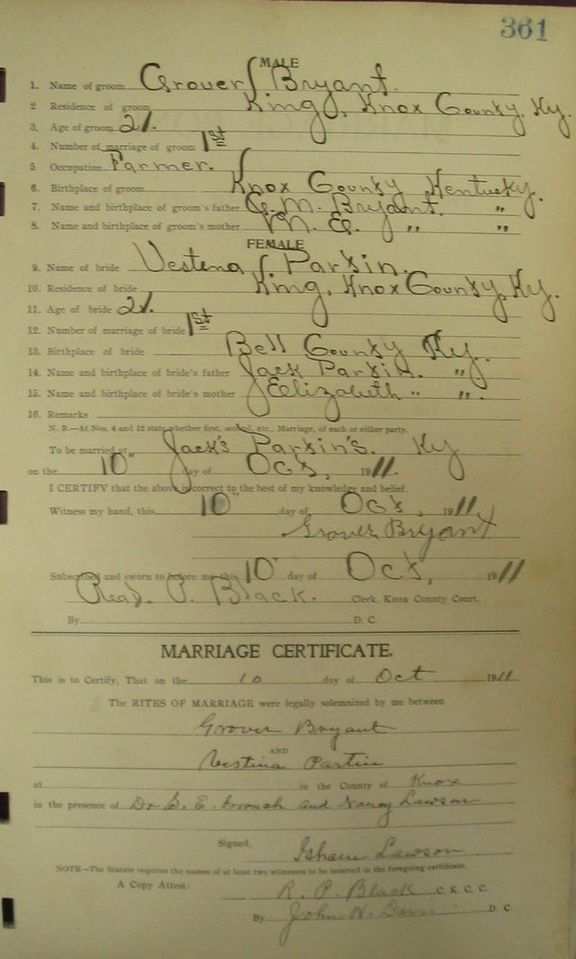 361
MALE
1. Name of groom Grover Bryant.
2 Residence of groom King, Knox County, Ky.
3. Age of groom 21.
4. Number of marriage of groom 1st
5 Occupation Farmer.
6. Birthplace of groom Knox County Kentucky.
7. Name and birthplace of groom's father M. Bryant. "
8. Name and birthplace of groom's mother M. E. " "
FEMALE
9. Name of bride Vestena Partin.
10. Residence of bride King, Knox County, Ky.
11. Age of bride 21.
12. Number of marriage of bride 1st
13. Birthplace of bride Bell County Ky.
14. Name and birthplace of bride's father Jack Partin. "
15. Name and birthplace of bride's mother Elizabeth " "
16. Remarks
N. B.—At Nos. 4 and 12 state whether first, second, etc., Marriage, of each or either party.
To be married at Jack's Partin's. Ky
on the 10" day of Oct, 1911.
I CERTIFY that the above is correct to the best of my knowledge and belief.
Witness my hand, this 10" day of Oct, 1911
Grover Bryant
Subscribed and sworn to before me this 10" day of Oct, 1911
Read P. Black. Clerk, Knox County Court.
By D. C.
MARRIAGE CERTIFICATE.
This is to Certify, That on the 10 day of Oct 1911
The RITES OF MARRIAGE were legally solemnized by me between
Grover Bryant
AND
Vestina Partin
at in the County of Knox
in the presence of Dr. E. and Nancy Lawson
Signed, Isham Lawson
NOTE—The Statute requires the names of at least two witnesses to be inserted in the foregoing certificate.
A Copy Attest: R. P. Black C. K. C. C.
By John N. D. C.